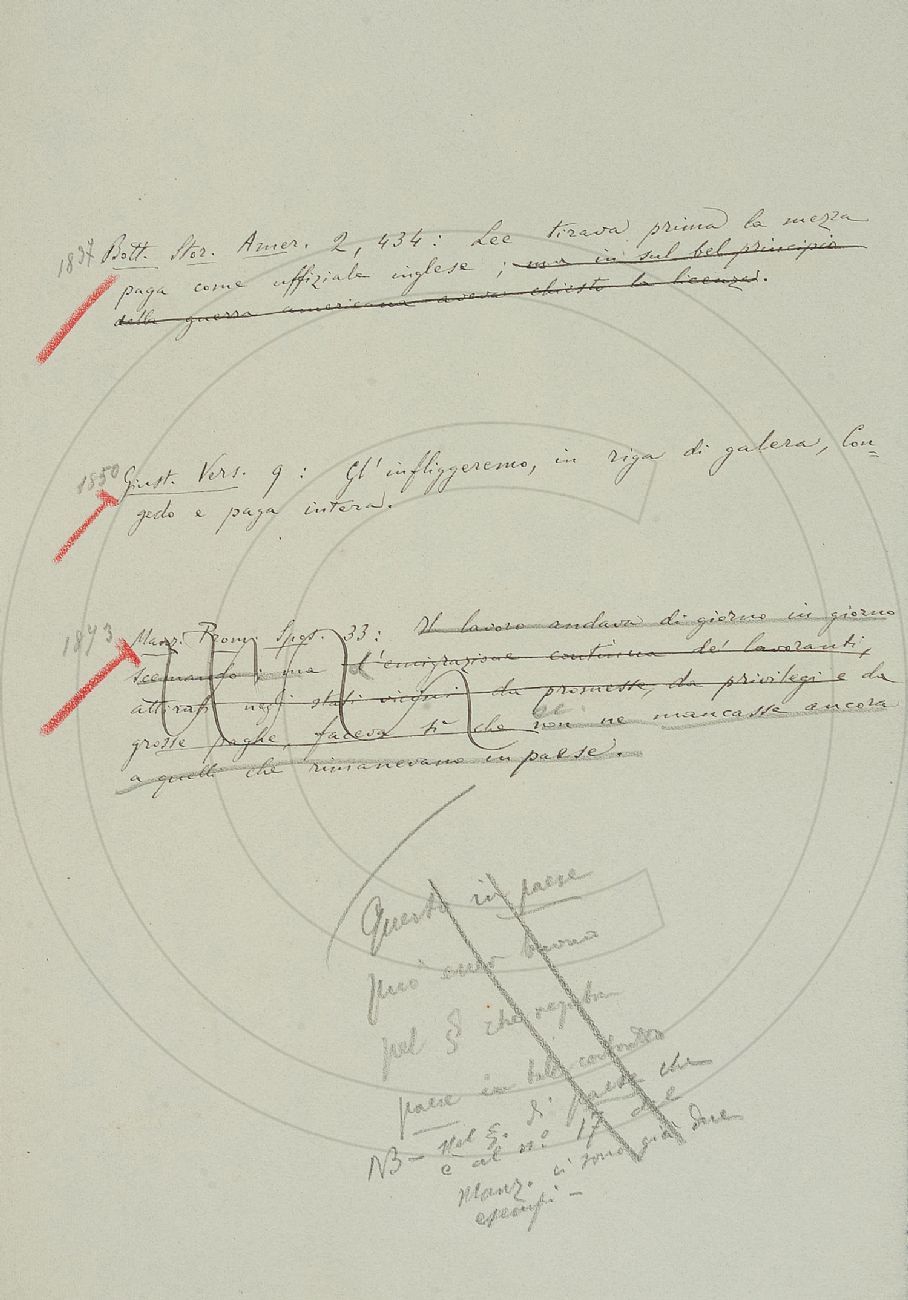 1837 Bott. Stor. Amer. 2, 434: Lee tirava prima la mezza
paga come uffiziale inglese; ma in sul bel principio
della guerra americana aveva chiesto la licenza.
1850 Giust. Vers. 9: Gl'infliggeremo, in riga di galera, Con=
gedo e paga intera.
1843 Manz. Prom. Spos. 33: Il lavoro andava di giorno in giorno
scemando: ma l'emigrazione continua de' lavoranti,
attirati negli stati vicini da promesse, da privilegi e da
grosse paghe, faceva sì che non ne mancasse ancora
a quelli che rimanevano in paese.
Questo in paese
può esser buono
pel § che registra
paese in tale
NB - Nel §. di paese che
è al n.º 17 del
Manz. ci sono già due
esempi -